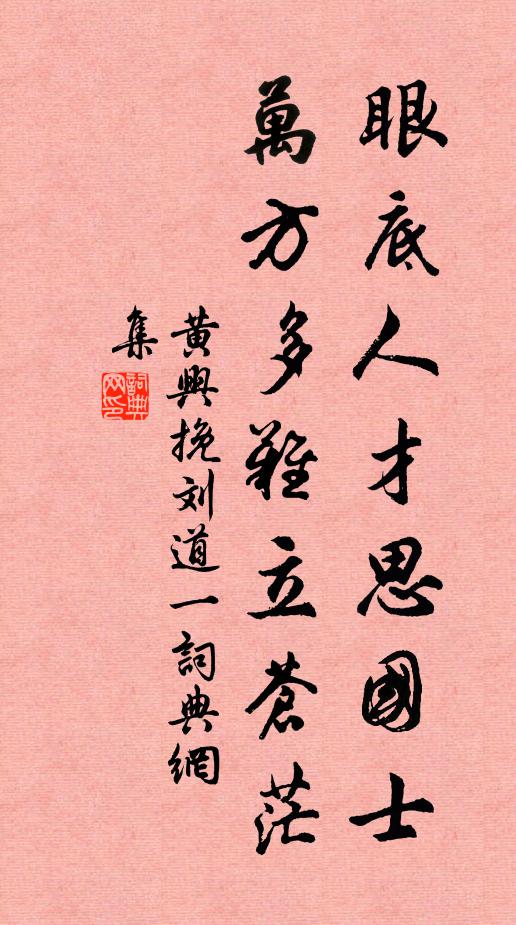 眼底人才思國士
萬方多難立蒼茫
黄興挽刘道一詞典網
集
詞典
网印